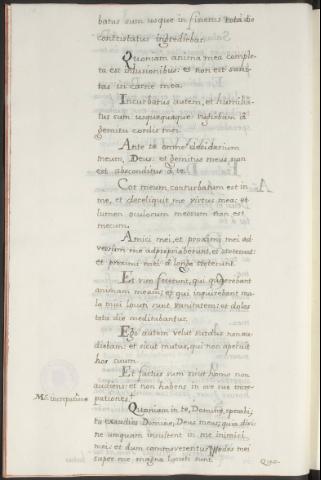 batus sum usque in finem: tota die
contristatus ingrediebar.
Quoniam anima mea comple-
ta est illusionibus: et non est sani-
tas in carne mea.
Incurbatus autem, et humilia-
tus sum usquequaque: rugiebam à
gemitu cordis mei.
Ante te omne desiderium
meum, Deus: et gemitus meus non
est absconditus à te.
Cor meum conturbatum est in
me, et dereliquit me virtus mea: et
lumen oculorum meorum non est
mecum.
Amici mei, et proximi mei ad-
versum me adpropiaberunt, et steterunt:
et proximi mei à longe steterunt.
Et vim feterunt, qui quærebant
animam meam: et qui inquirebant ma-
la mici loquti sunt vanitatem: et dolos
tota die meditabantur.
Ego autem velut surdus non au-
diebam: et sicut mutus, qui non aperuit
hos suum.
Et factus sum sicut homo non
audiens: et non habens in ore suo incre-
pationes.
Quoniam in te, Domine, speravi;
tu exaudies Domine, Deus meus: quia dixi:
ne umquam insultent in me inimici
mei: et dum commoverentur pedes mei
super me magna loquti sunt.
Quo-